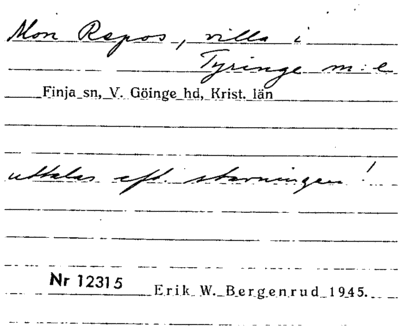 Mon Repos, villa i
Tyringe m:e
Finja sn, V. Göinge hd, Krist. län
uttalas eft. stavningen!
Nr 12315
Erik W. Bergenrud 1945.